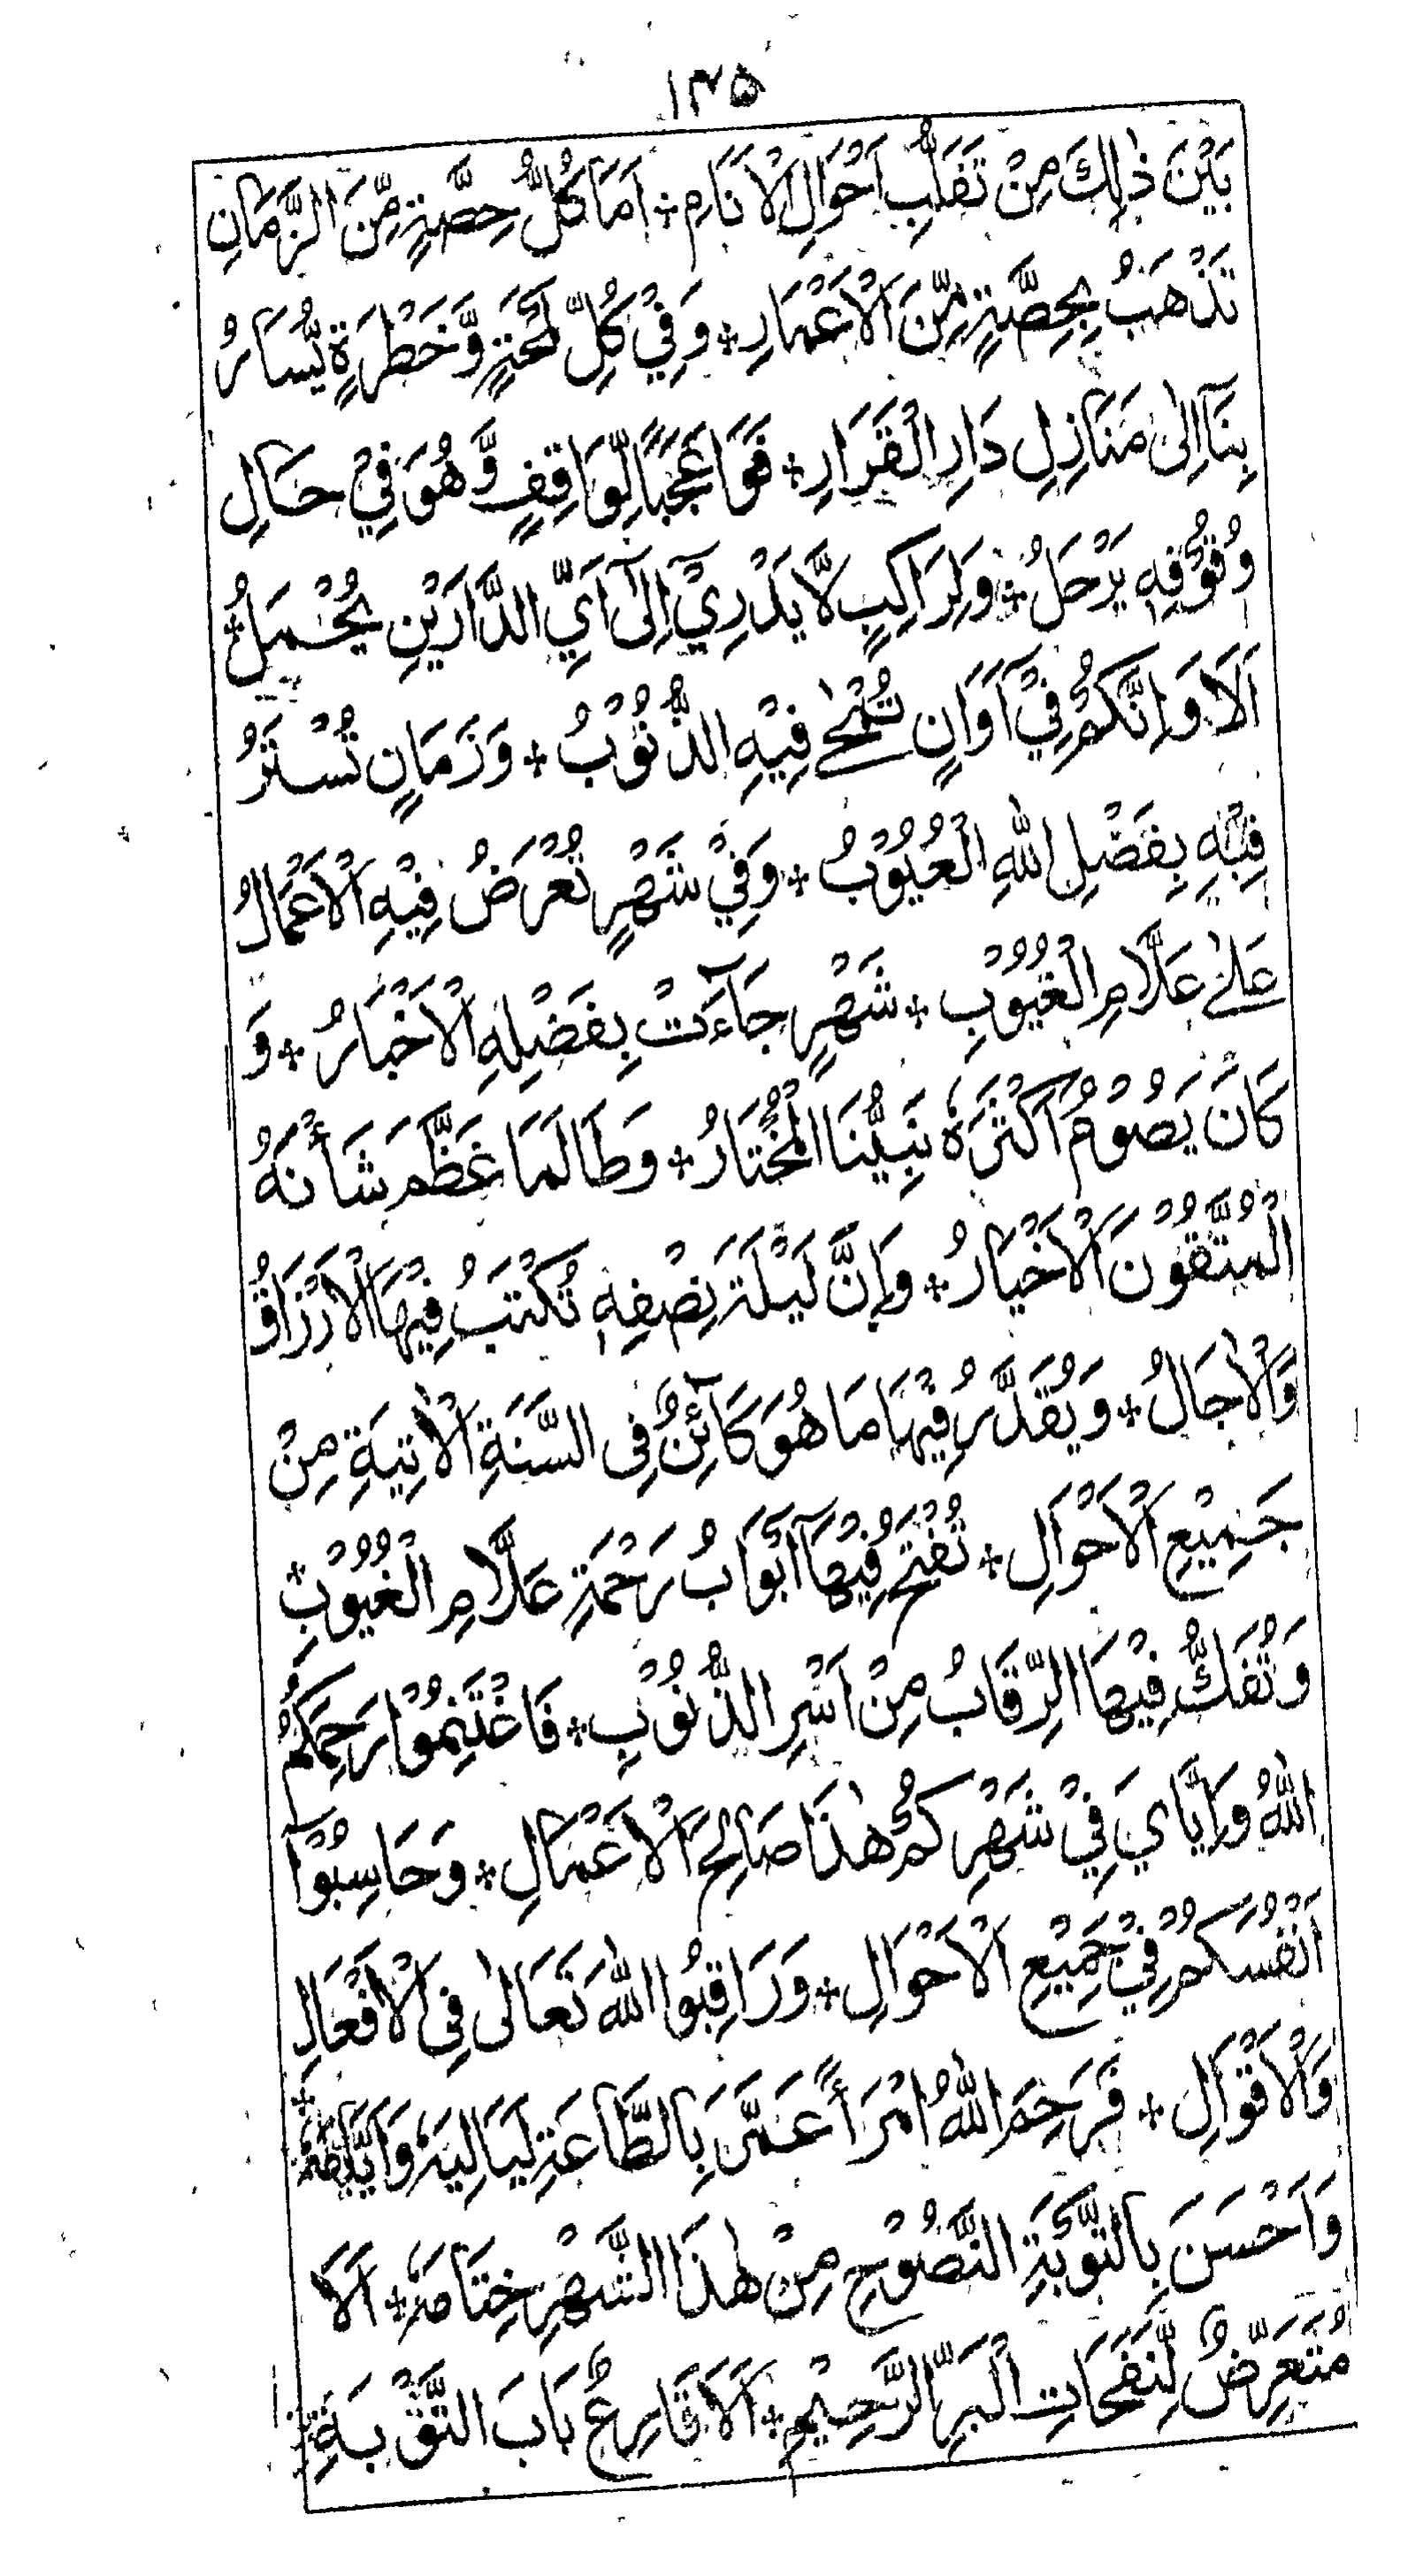 ١٣٥
بَيْنَ ذٰلِكَ مِنْ تَقَلُّبِ اَحْوَالِ الْاَنَامِ ÷ اَمَا كُلُّ حِصَّةٍ مِّنَ الزَّمَانِ
تَذْهَبُ بِحِصَّةٍ مِّنَ الْاَعْمَارِ ÷ وَفِيْ كُلِّ لَمْحَةٍ وَّخَطْرَةٍ يُّسَارُ
بِنَا اِلىٰ مَنَازِلِ دَارِ الْقَرَارِ ÷ فَوَاعَجَبًا لِّوَاقِفٍ وَّهُوَ فِيْ حَالِ
وُقُوْفِهٖ يَرْحَلُ ÷ وَلِرَاكِبٍ لَّا يَدْرِيْ اِلىٰٓ اَيِّ الدَّارَيْنِ يُحْمَلُ ÷
اَلَا وَاِنَّكُمْ فِيْٓ اَوَانٍ تُمْحٰى فِيْهِ الذُّنُوْبُ ÷ وَزَمَانٍ تُسْتَرُ
فِيْهِ بِفَضْلِ اللّٰهِ الْعُيُوْبُ ÷ وَفِيْ شَهْرٍ تُعْرَضُ فِيْهِ الْاَعْمَالُ
عَلىٰ عَلَّامِ الْغُيُوْبِ ÷ شَهْرٍ جَآءَتْ بِفَضْلِهِ الْاَخْبَارُ ÷ وَ
كَانَ يَصُوْمُ اَكْثَرَهٗ نَبِيُّنَا الْمُخْتَارُ ÷ وَطَالَمَا عَظَّمَ شَأْنَهُ
الْمُتَّقُوْنَ الْاَخْيَارُ ÷ وَاِنَّ لَيْلَةَ نِصْفِهٖ تُكْتَبُ فِيْهَا الْاَرْزَاقُ
وَالْاٰجَالُ ÷ وَيُقَدَّرُ فِيْهَا مَا هُوَ كَآئِنٌ فِى السَّنَةِ الْاٰتِيَةِ مِنْ
جَمِيْعِ الْاَحْوَالِ ÷ تُفْتَحُ فِيْهَآ اَبْوَابُ رَحْمَةِ عَلَّامِ الْغُيُوْبِ ÷
وَتُفَكُّ فِيْهَا الرِّقَابُ مِنْ اَسْرِ الذُّنُوْبِ ÷ فَاغْتَنِمُوْا رَحِمَكُمُ
اللّٰهُ وَاِيَّايَ فِيْ شَهْرِكُمْ هٰذَا صَالِحَ الْاَعْمَالِ ÷ وَحَاسِبُوْٓا
اَنْفُسَكُمْ فِيْ جَمِيْعِ الْاَحْوَالِ ÷ وَرَاقِبُوا اللّٰهَ تَعَالىٰ فِى الْاَفْعَالِ
وَالْاَقْوَالِ ÷ فَرَحِمَ اللّٰهُ امْرَأً عَمَّرَ بِالطَّاعَةِ لَيَالِيَهٗ وَاَيَّامَهٗ ÷
وَاَحْسَنَ بِالتَّوْبَةِ النَّصُوْحِ مِنْ هٰذَا الشَّهْرِ خِتَامَهٗ ÷ اَلَا
مُتَعَرِّضٌ لِّنَفَحَاتِ الْبَرِّ الرَّحِيْمِ ÷ اَلَا قَارِعٌ بَابَ التَّوْبَةِ